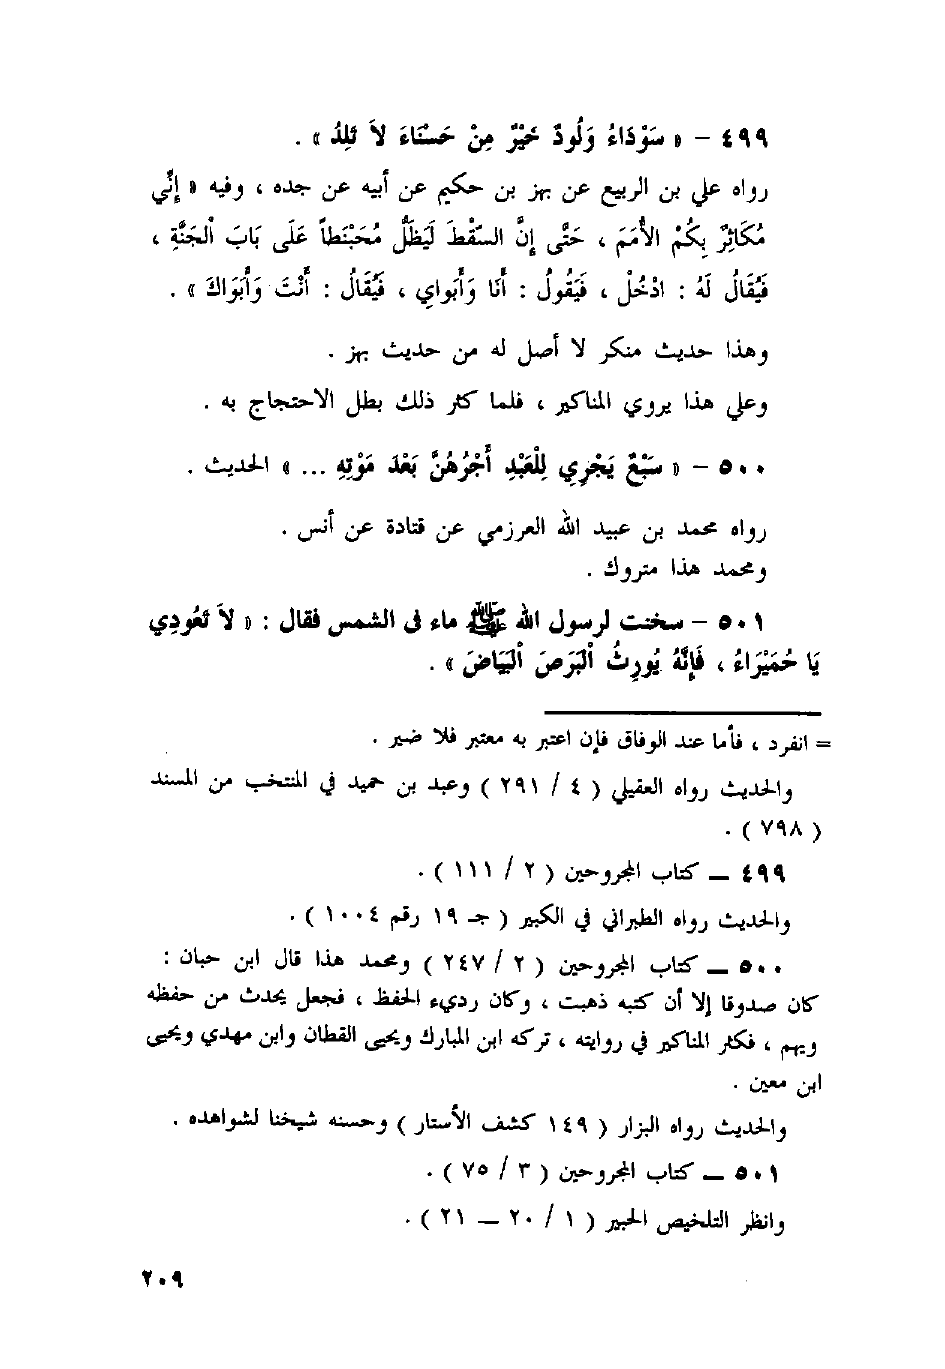 ٤٩٩ – « سَوْدَاءُ وَلُودٌ خَيْرٌ مِنْ حَسْنَاءَ لاَ تَلِدُ » .
رواه علي بن الربيع عن بهز بن حكيم عن أبيه عن جده ، وفيه « إِنِّي
مُكَاثِرٌ بِكُمْ الأُمَمَ ، حَتَّى إِنَّ السِّقْطَ لَيَظَلُّ مُحْبَنْطاً عَلَى بَابَ الْجَنَّةِ ،
فَيُقَالُ لَهُ : ادْخُلْ ، فَيَقُولُ : أَنَا وَأَبَواي ، فَيُقَالُ : أَنْتَ وَأَبَوَاكَ » .
وهذا حديث منكر لا أصل له من حديث بهز .
وعلي هذا يروي المناكير ، فلما كثر ذلك بطل الاحتجاج به .
٥٠٠ – « سَبْعٌ يَجْرِي لِلْعَبْدِ أَجْرُهُنَّ بَعْدَ مَوْتِهِ ... » الحديث .
رواه محمد بن عبيد الله العرزمي عن قتادة عن أنس .
ومحمد هذا متروك .
٥٠١ – سخنت لرسول الله ﷺ ماء فى الشمس فقال : « لاَ تَعُودِي
يَا حُمَيْرَاءُ ، فَإِنَّهُ يُورِثُ الْبَرَصَ الْبَيَاضَ » .
= انفرد ، فأما عند الوفاق فإن اعتبر به معتبر فلا ضير .
والحديث رواه العقيلي ( ٤ / ٢٩١ ) وعبد بن حميد في المنتخب من المسند
( ٧٩٨ ) .
٤٩٩ – كتاب المجروحين ( ٢ / ١١١ ) .
والحديث رواه الطبراني في الكبير ( جـ ١٩ رقم ١٠٠٤ ) .
٥٠٠ – كتاب المجروحين ( ٢ / ٢٤٧ ) ومحمد هذا قال ابن حبان :
كان صدوقا إلا أن كتبه ذهبت ، وكان رديء الحفظ ، فجعل يحدث من حفظه
ويهم ، فكثر المناكير في روايته ، تركه ابن المبارك ويحيى القطان وابن مهدي ويحيى
ابن معين .
والحديث رواه البزار ( ١٤٩ كشف الأستار ) وحسنه شيخنا لشواهده .
٥٠١ – كتاب المجروحين ( ٣ / ٧٥ ) .
وانظر التلخيص الحبير ( ١ / ٢٠ – ٢١ ) .
٢٠٩